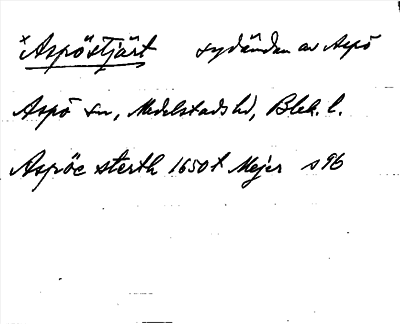 × Aspöstjärt sydändan av Aspö
Aspö sn, Medelstads hd, Blek. l.
Aspöe sterth 1650t Mejer s 96